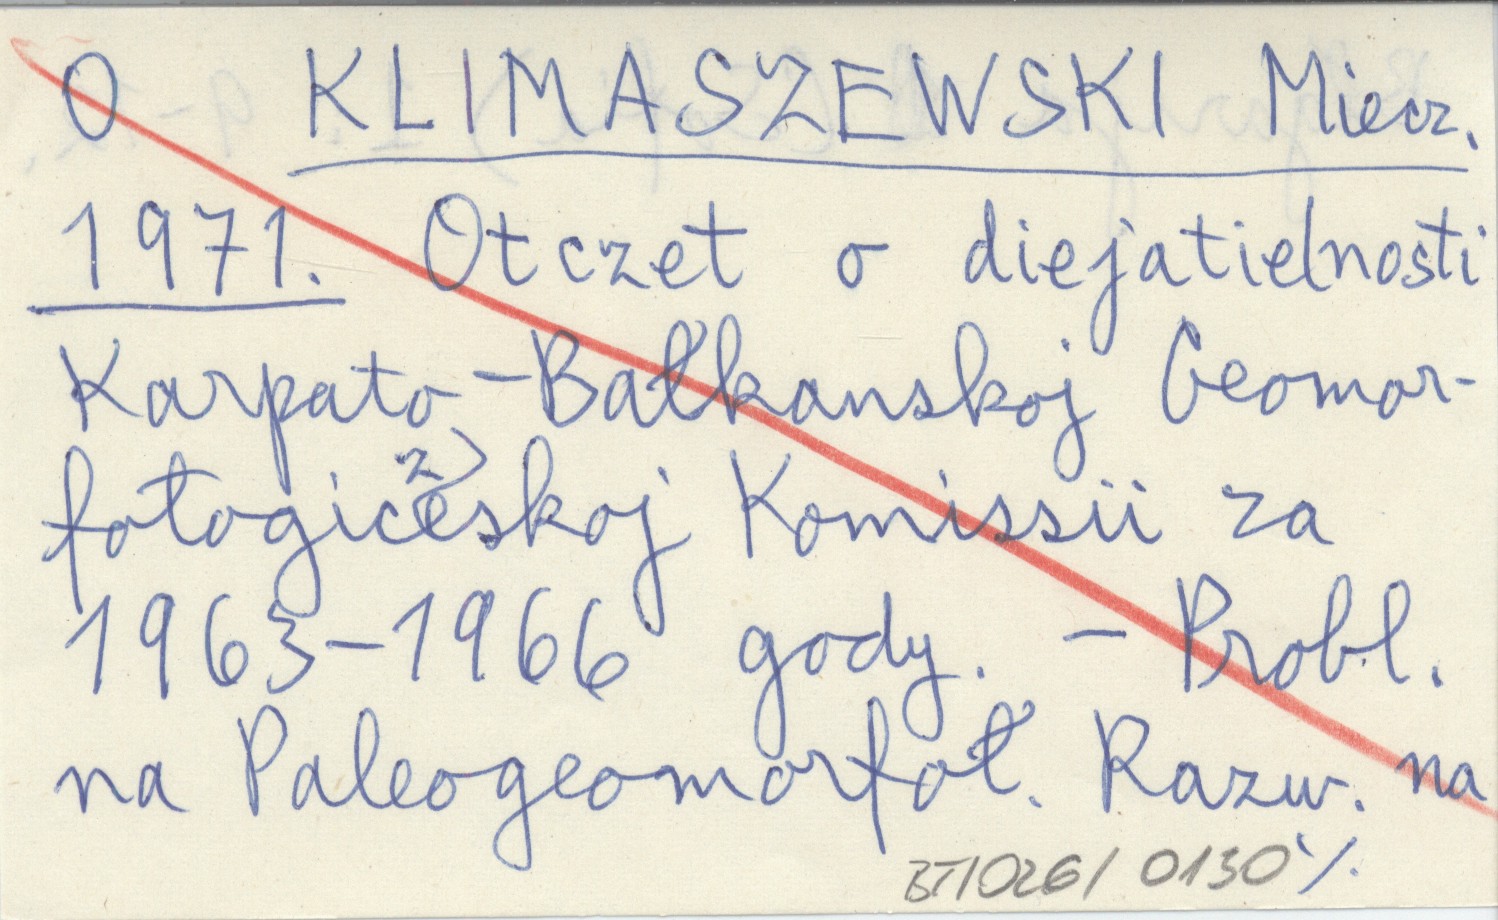 O KLIMASZEWSKI Miecz.
1971. Otczet o diejatielnosti
Karpato-Bałkanskoj Geomor-
fołogiczeskoj Komissii za
1963-1966 gody. - Probl.
na Paleogeomorfoł. Razw. na
BT/026/0130 ./.